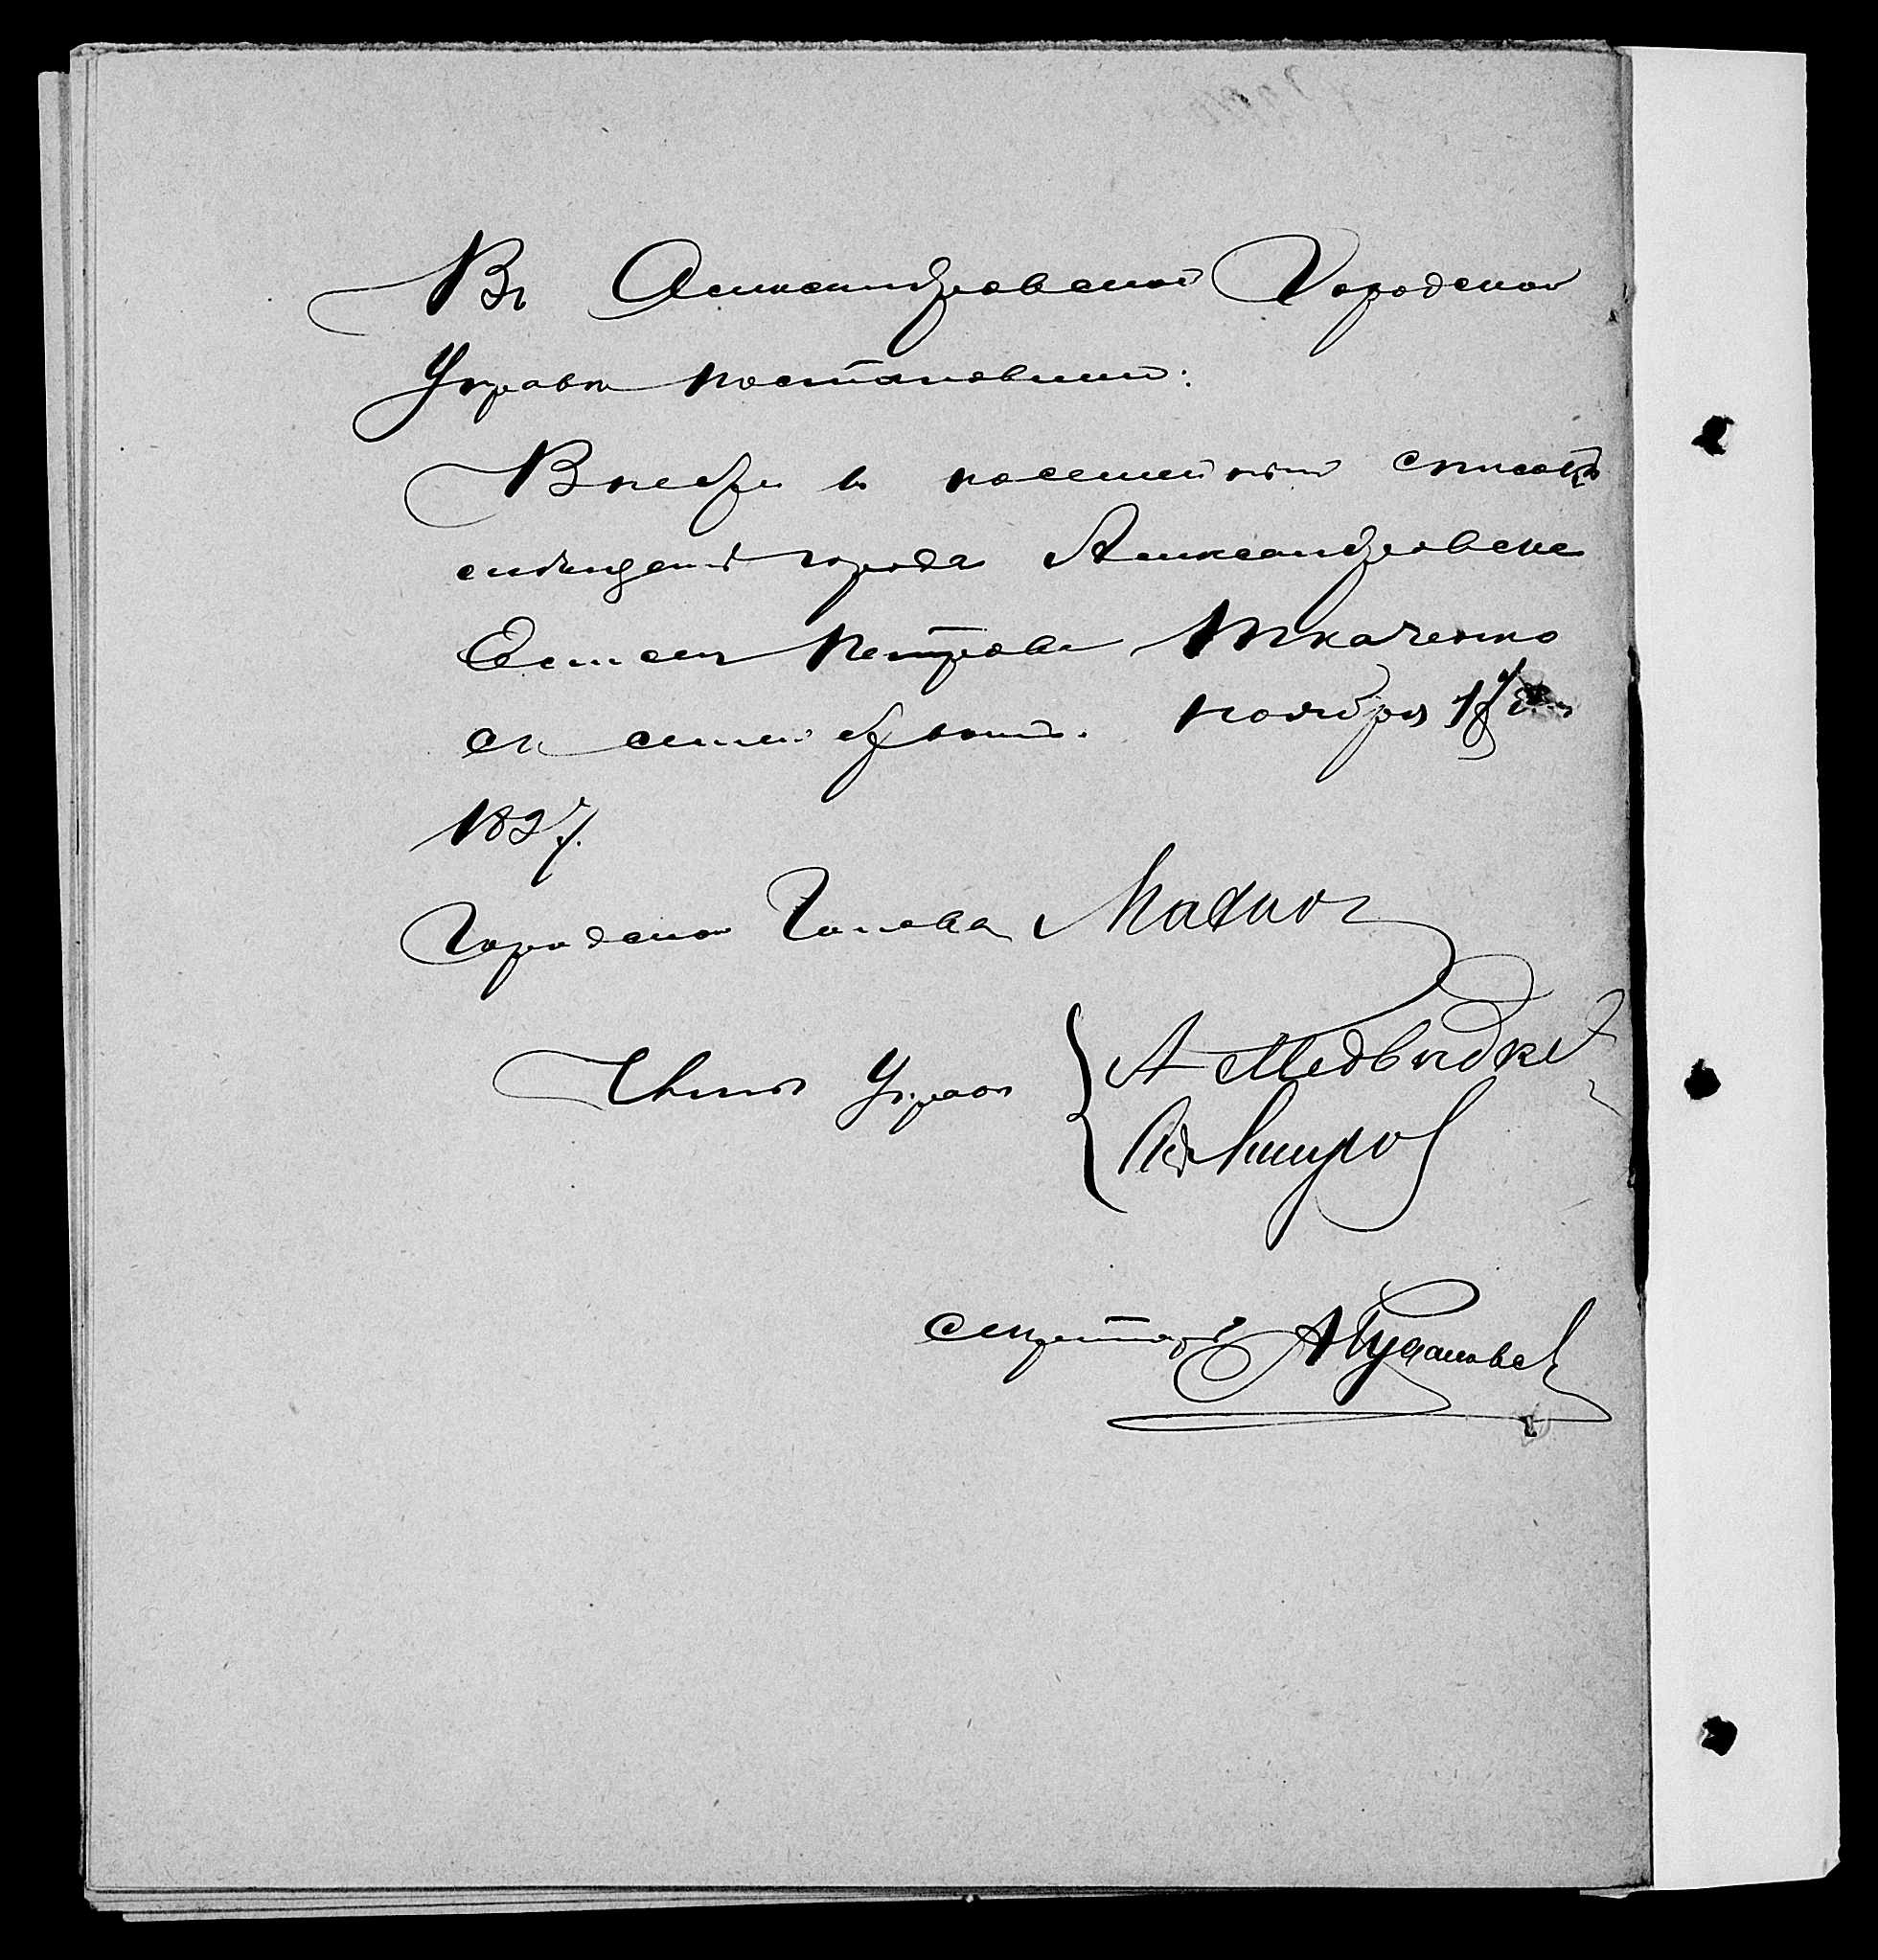 Въ Александровской Городской
Управѣ постановили:
Внести въ посемейный списокъ
города Александровска
Петрова Ткаченко
съ семействомъ. Ноября
1897.
Городской Голова Махно
Члены Управы А Медвѣдк
Секретарь А